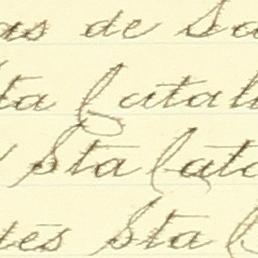 as de Sa
ta Catal
Sta Cata
tés Sta C